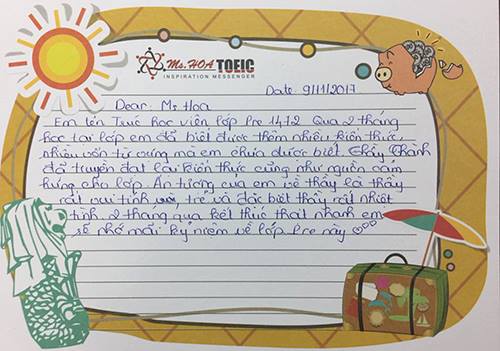 Ms. HOA TOEIC
INSPIRATION MESSENGER
Date: 9/11/2017
Dear: Ms Hoa
Em tên Trúc học viên lớp Pre 1472. Qua 2 tháng
học tại lớp em đã biết được thêm nhiều kiến thức,
nhiều vốn từ vựng mà em chưa được biết. Thầy Thành
đã truyền đạt lại kiến thức cũng như nguồn cảm
hứng cho lớp. Ấn tượng của em về thầy là thầy
rất vui tính trẻ và đặc biệt thầy rất nhiệt
tình. 2 tháng qua kết thúc thật nhanh em
sẽ nhớ mãi kỷ niệm về lớp Pre này